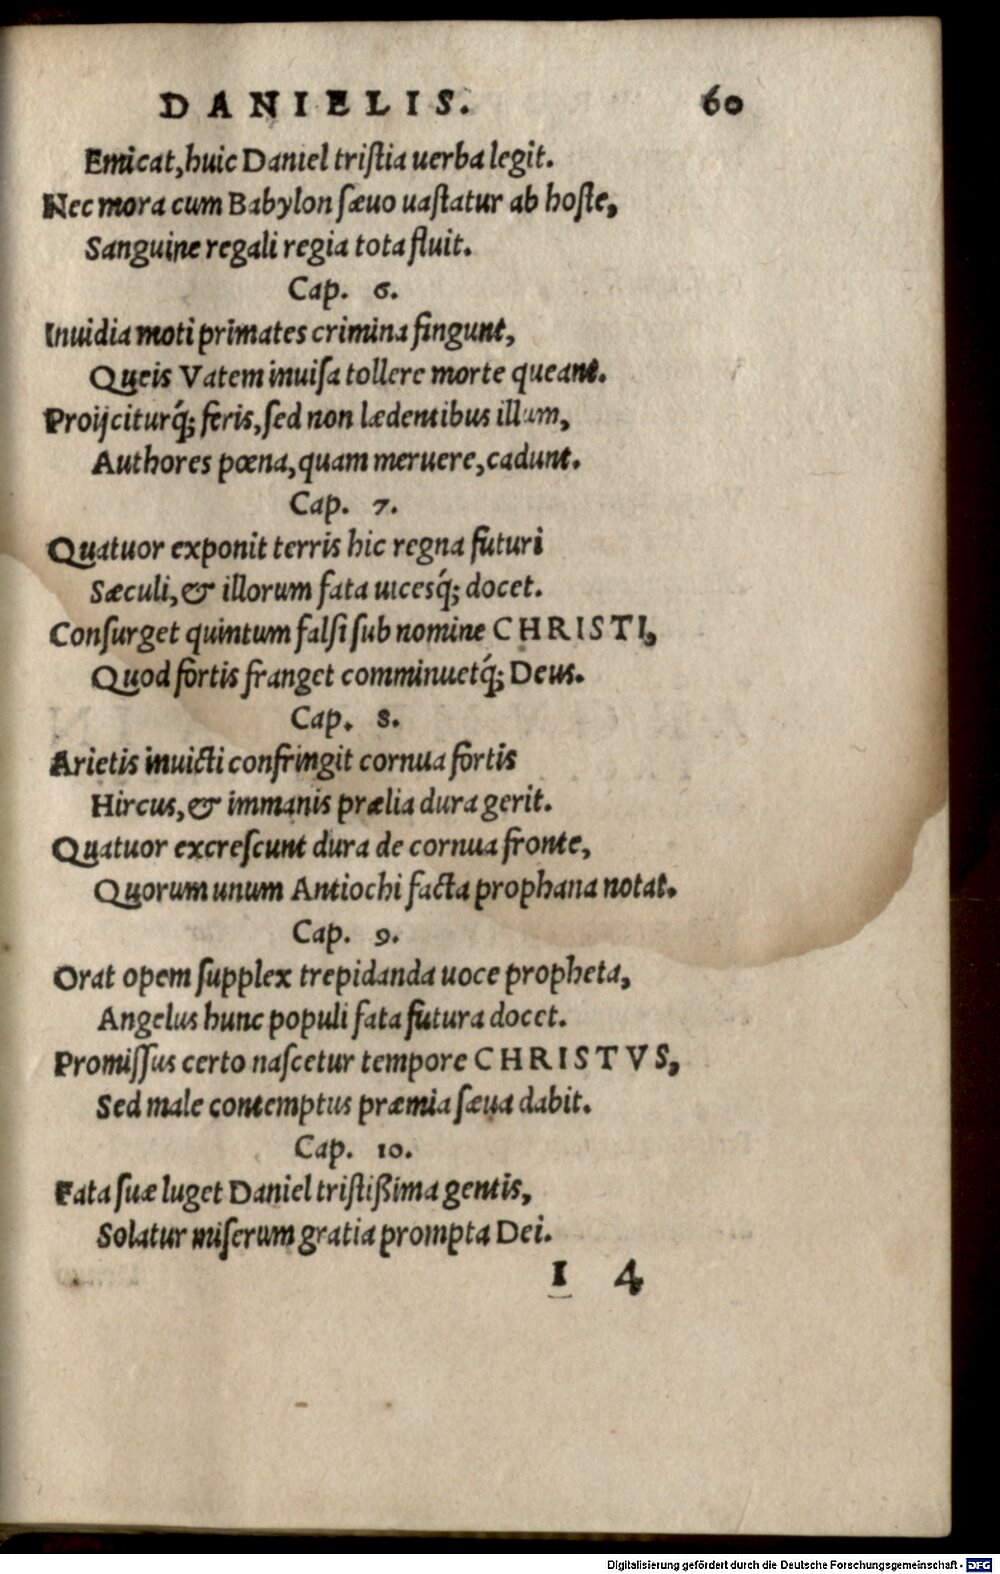 DANIELIS. 60
Emicat, huic Daniel tristia uerba legit.
Nec mora cum Babylon sæuo uastatur ab hoste,
Sanguine regali regia tota fluit.
Cap. 6.
Inuidia moti primates crimina fingunt,
Queis Vatem inuisa tollere morte queant.
Proijciturq́; feris, sed non lædentibus illum,
Authores pœna, quam meruere, cadunt.
Cap. 7.
Quatuor exponit terris hic regna futuri
Sæculi, & illorum fata uicesq́; docet.
Consurget quintum falsi sub nomine CHRISTI,
Quod fortis franget comminuetq́; Deus.
Cap. 8.
Arietis inuicti confringit cornua fortis
Hircus, & immanis prælia dura gerit.
Quatuor excrescunt dura de cornua fronte,
Quorum unum Antiochi facta prophana notat.
Cap. 9.
Orat opem supplex trepidanda uoce propheta,
Angelus hunc populi fata futura docet.
Promissus certo nascetur tempore CHRISTVS,
Sed male contemptus præmia sæua dabit.
Cap. 10.
Fata suæ luget Daniel tristißima gentis,
Solatur miserum gratia prompta Dei.
I 4
Digitalisierung gefördert durch die Deutsche Forschungsgemeinschaft - DFG